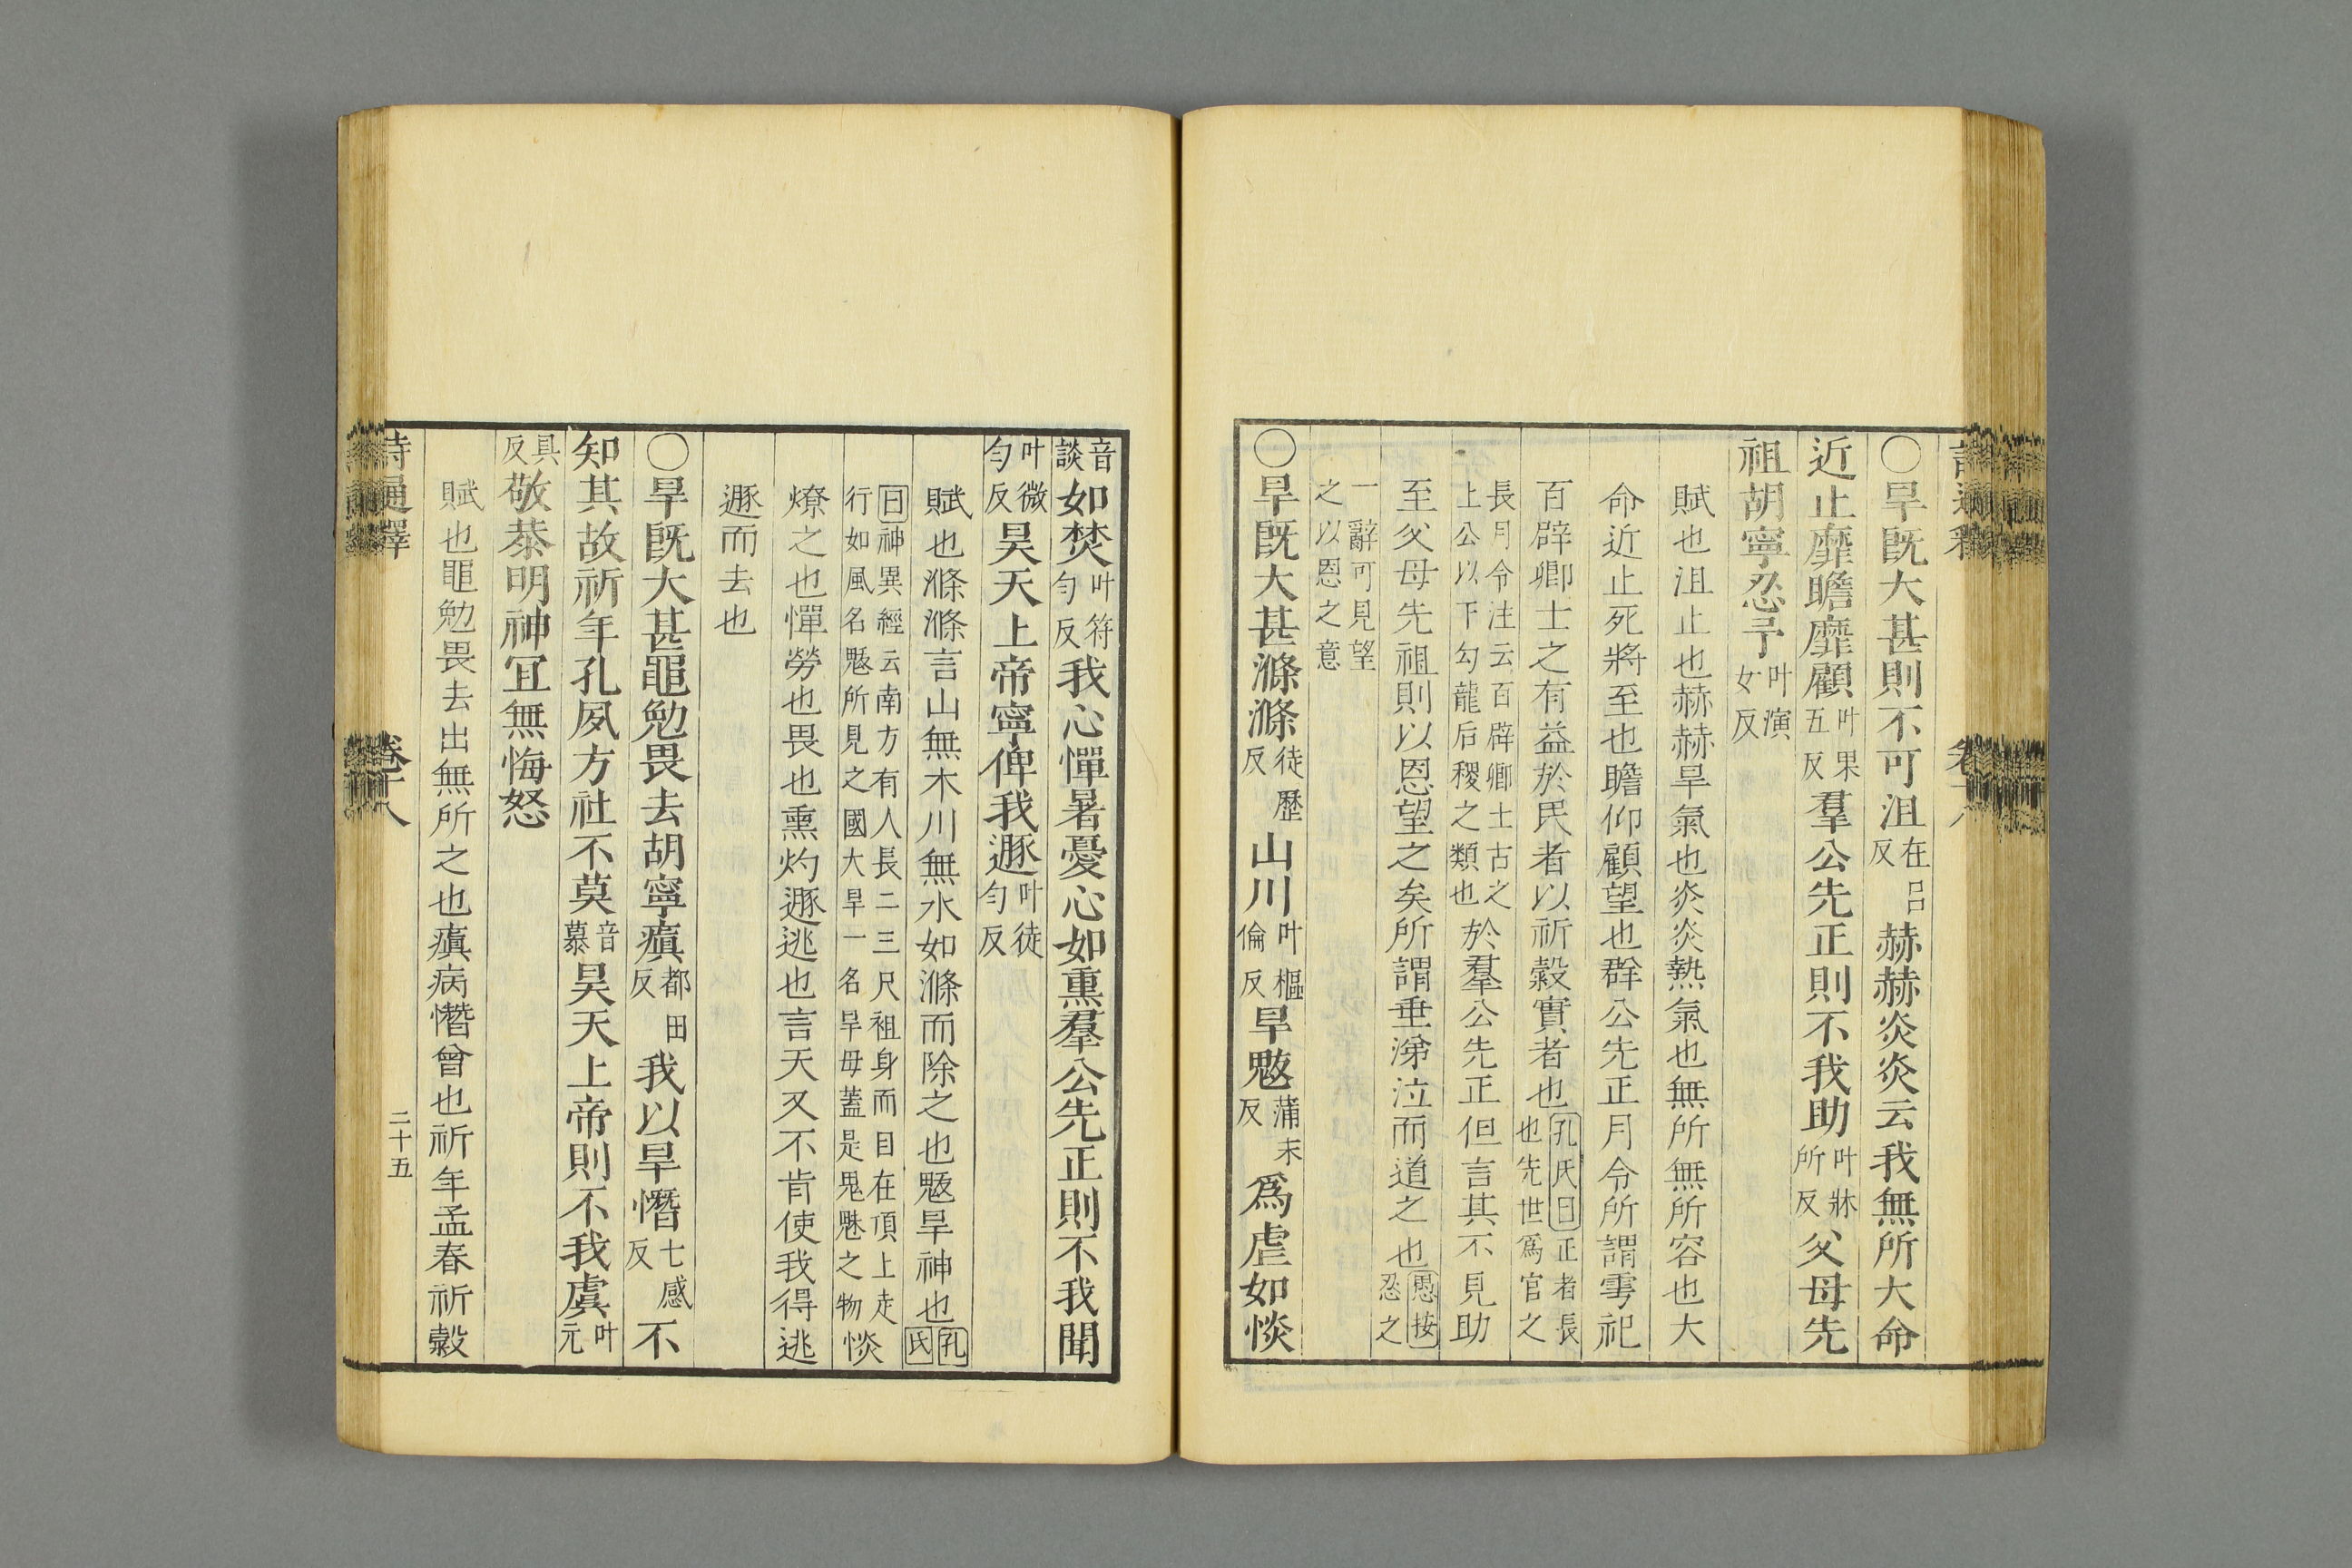 〇旱旣大甚則不可沮在呂反赫赫炎炎云我無所大命
近止靡瞻靡顧叶果五反羣公先正則不我助叶牀所反父母先
祖胡寧忍予叶演女反
賦也沮止也赫赫旱氣也炎炎熱氣也無所無所容也大
命近止死將至也瞻仰顧望也群公先正月令所謂雩祀
百辟卿士之有益於民者以祈穀實者也孔氏曰正者長也先世爲官之
長月令注云百辟卿士古之上公以下勾龍后稷之類也於羣公先正但言其不見助
至父母先祖則以恩望之矣所謂垂涕泣而道之也愚按忍之
一辭可見望之以恩之意
〇旱旣大甚滌滌徒歷反山川叶樞倫反旱魃蒲末反爲虐如惔
音談如焚叶符勻反我心憚暑憂心如熏羣公先正則不我聞
叶微勻反昊天上帝寧俾我遯叶徒勻反
賦也滌滌言山無木川無水如滌而除之也魃旱神也孔氏
曰神異經云南方有人長二三尺袒身而目在頂上走行如風名魃所見之國大旱一名旱母蓋是鬼魅之物惔
燎之也憚勞也畏也熏灼遯逃也言天又不肯使我得逃
遯而去也
〇旱旣大甚黽勉畏去胡寧瘨都田反我以旱憯七感反不
知其故祈年孔夙方社不莫音慕昊天上帝則不我虞叶元
具反敬恭明神宜無悔怒
賦也黽勉畏去出無所之也瘨病憯曾也祈年孟春祈穀
詩通釋 卷十八 二十五